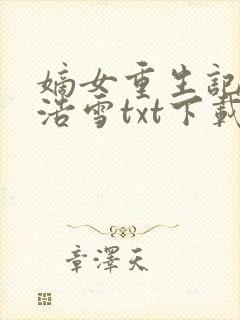 嫡女重生記
浩雪txt下載
章澤天